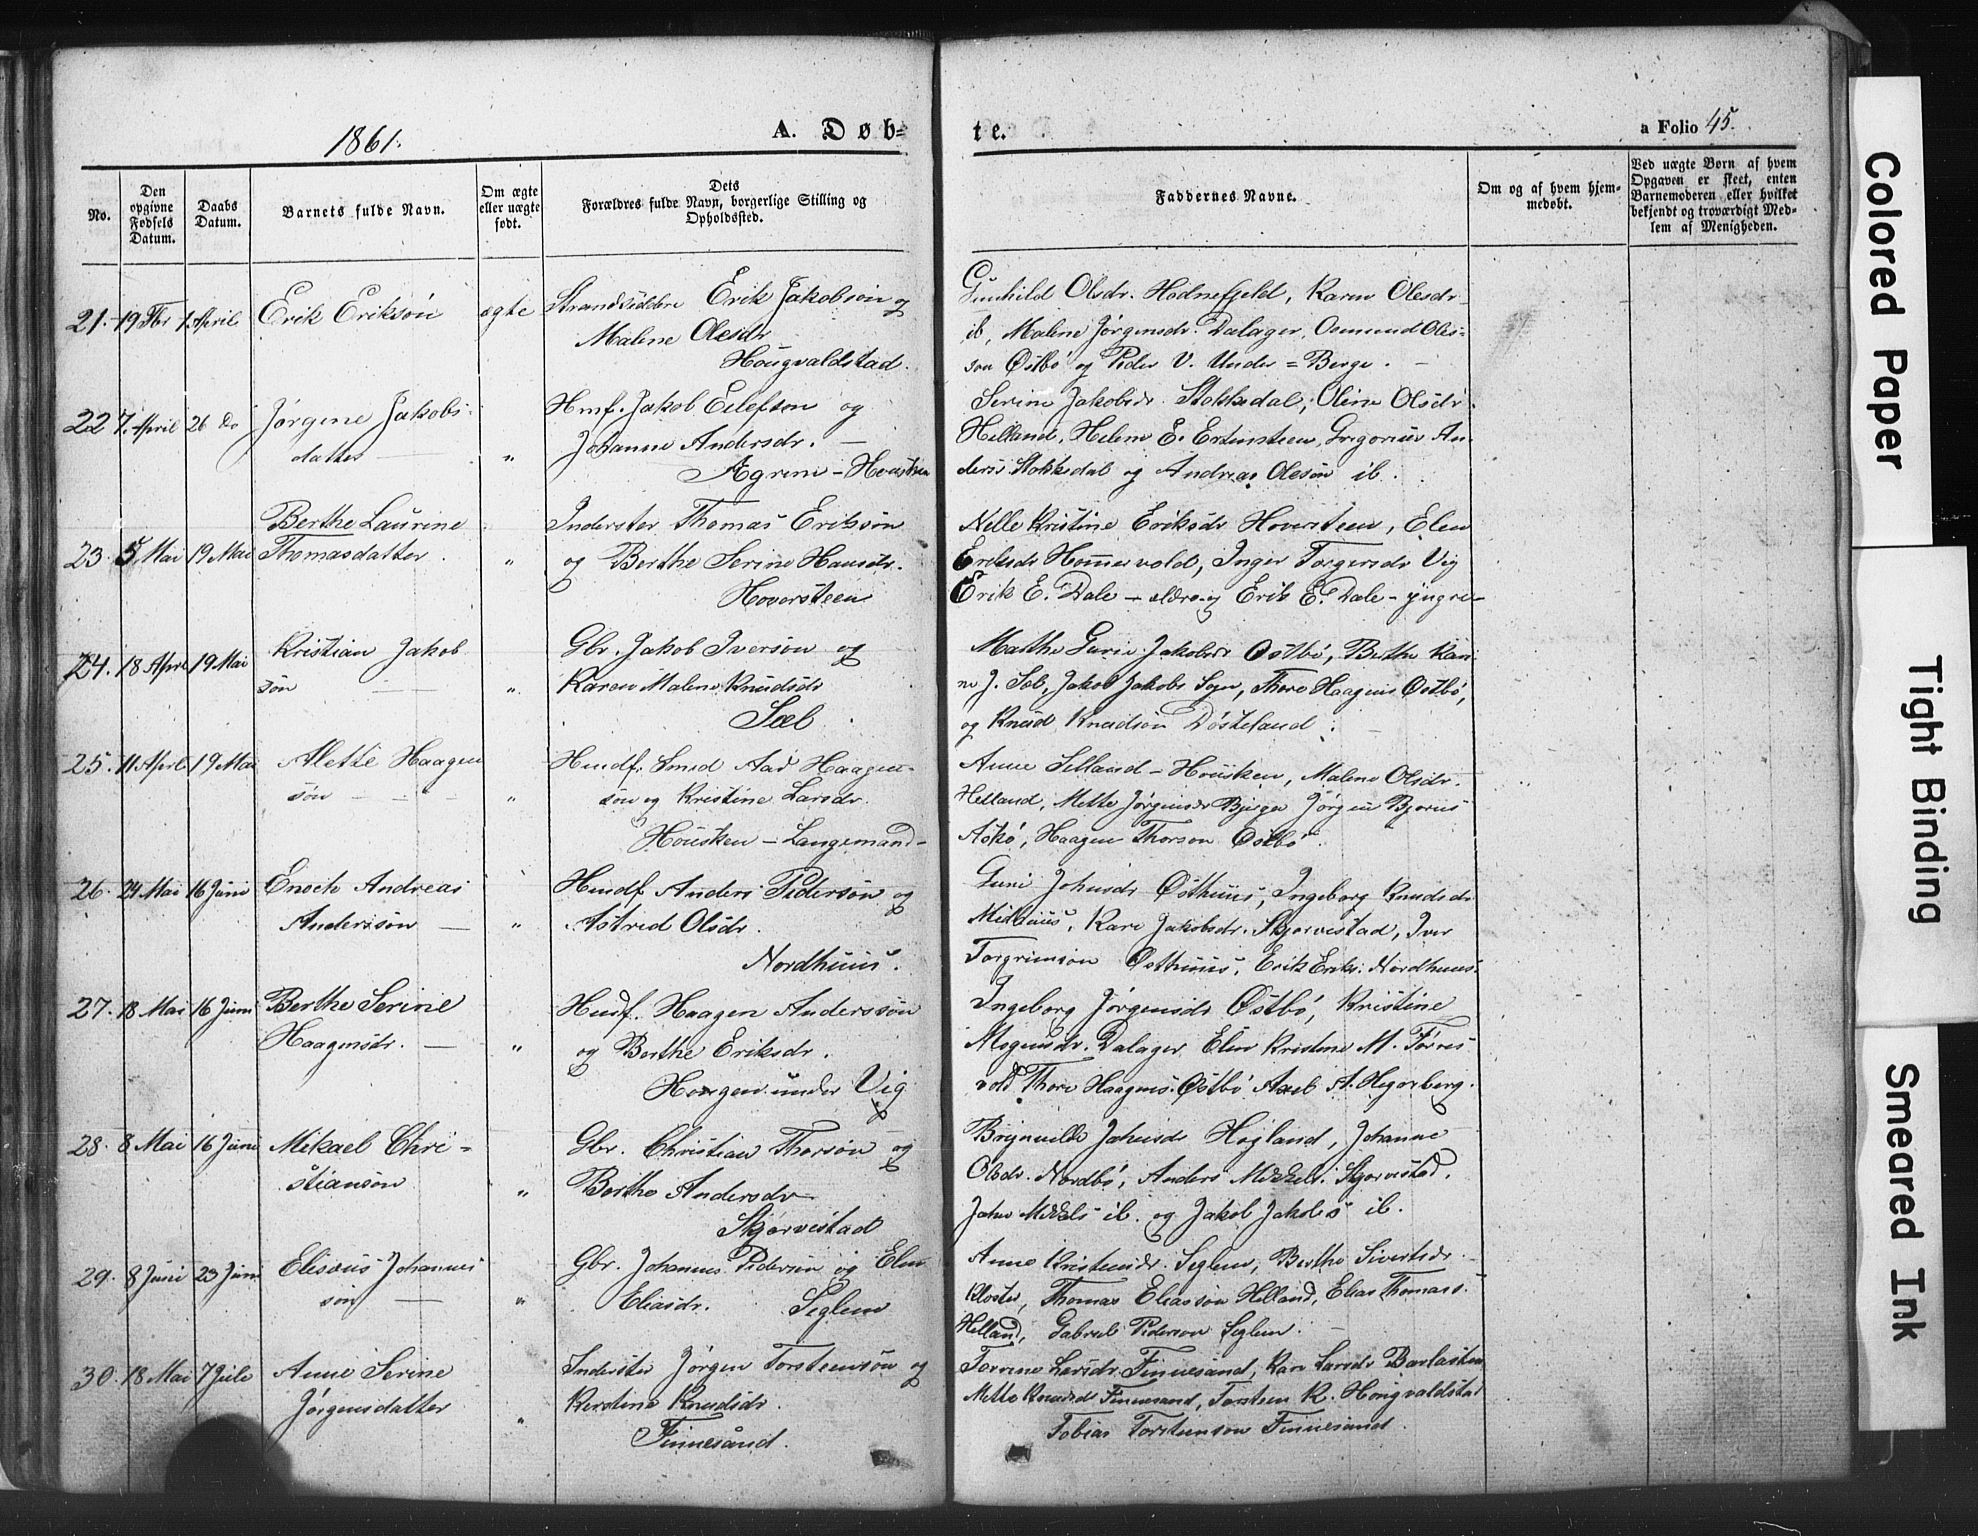 1861.
A. Døb=
te.
a Folio 45.
No.
Den opgivne Fødsels Datum.
Daabs Datum.
Barnets fulde Navn.
Om ægte eller uægte født.
Dets Forældres fulde Navn, borgerlige Stilling og Opholdssted.
Faddernes Navne.
Om og af hvem hjemmedøbt.
Ved uægte Børn af hvem
Opgaven er skeet, enten
Barnemoderen eller hvilket
bekjendt og troværdigt Med-
lem af Menigheden.
21. 19 Fbr 1 April Erik Erikson ægte Strandsidder Erik Jakobson og
Malene Olesdr
Hougvaldstad.
Gunhild Olsdr. Hodnefjeld, Karen Olesdr
ib, Malene Jørgensdr. Dalager, Osmund Oles-
son Østbö og Peder V. Under = Berge.
22 7. April 26 do Jørgine Jakobs-
datter "
Hmf. Jakob Eilefson og
Johanne Andersdr.
Serine Jakobsdr. Stokkedal, Oline Olsdr.
Helland, Helene E. Gregorius An-
ders Stokkedal og Andreas Oleson ib.
23. 5 Mai 19 Mai Berthe Laurine
Thomasdatter "
Inderster Thomas Erikson
og Berthe Serine Hansdr.
Hoversteen
Nelle Kristine Eriksdr Hoversteen, Elen
Eriksdr Hommervold, Inger Torgersdr Vig
Erik E. Dale - ældre og Erik E. Dale - yngre
24. 18 April 19 Mai Kristian Jakob
søn "
Gbr. Jakob Iverson og
Karen Malene Knudsdr
Sæl
Malthe Gurie Jakobsdr Østbö, Berthe Kari-
ne J. Sæl, Jakob Jakobs Thore Haagens Østbö,
og Knud Knudsön
25. 11 April 19 Mai Alette Haagen
søn "
Husmf. Smed Aad Haagen-
søn og Kristine Larsdr.
Housken - Langemand-
Anne Selland - Housken, Malene Olsdr.
Helland, Mette Jørgensdr Bjerge Jörgen Bjornes
Askö, Haagen Thorson Østbö
26. 24 Mai 16 Juni Enoch Andreas
Andersön "
Husmf Anders Pederson og
Astrid Olsdr.
Nordhuus.
Guri Johnsdr Østhuus, Ingeborg Knudsdr
Midhuus, Kari Jakobsdr. Skjørvestad, Iver
Torgrimson Østhuus, Erik Eriks. Nordhuus.
27. 18 Mai 16 Juni Berthe Serine
Haagensdr. "
Husmf. Haagen Anderson
og Berthe Eriksdr.
under Vig
Ingeborg Jørgensdr Østbö, Kristine
Mogensdr. Dalager Elen Kristine M. Førres
vold Thore Haagens. Østbö Axel A. Hegerberg.
28. 8 Mai 16 Juni Mikael Chri-
stiansøn "
Gbr. Christian Thorson og
Berthe Andersdr
Skjørvestad
Brynnilde Johnsdr Høgland, Johanne
Olsdr. Nordbö, Anders Mikkels. Skjørvestad,
John Mikkels ib. og Jakob Jakobs ib.
29. 8 Juni 23 Juni Elisæus Johannes
søn "
Gbr. Johannes Pederson og Elen
Eliasdr. Seglem
Anne Kristensdr. Seglem, Berthe Sivertsdr.
Kloster, Thomas Eliasson Helland, Elias Thomass.
Helland, Gabriel Pederson Seglem.
30. 18 Mai 7 Juli Anne Serine
Jørgensdatter "
Inderster Jørgen Torsteenson og
Kerstine Knudsdr.
Finnesand.
Torrine Larsdr. Finnesand, Kari Larsdr Barlasten
Mette Knudsdr Finnesand, Torsten K. Hougvaldstad
Tobias Torsteenson Finnesand.
Colored Paper
Tight Binding
Smeared Ink